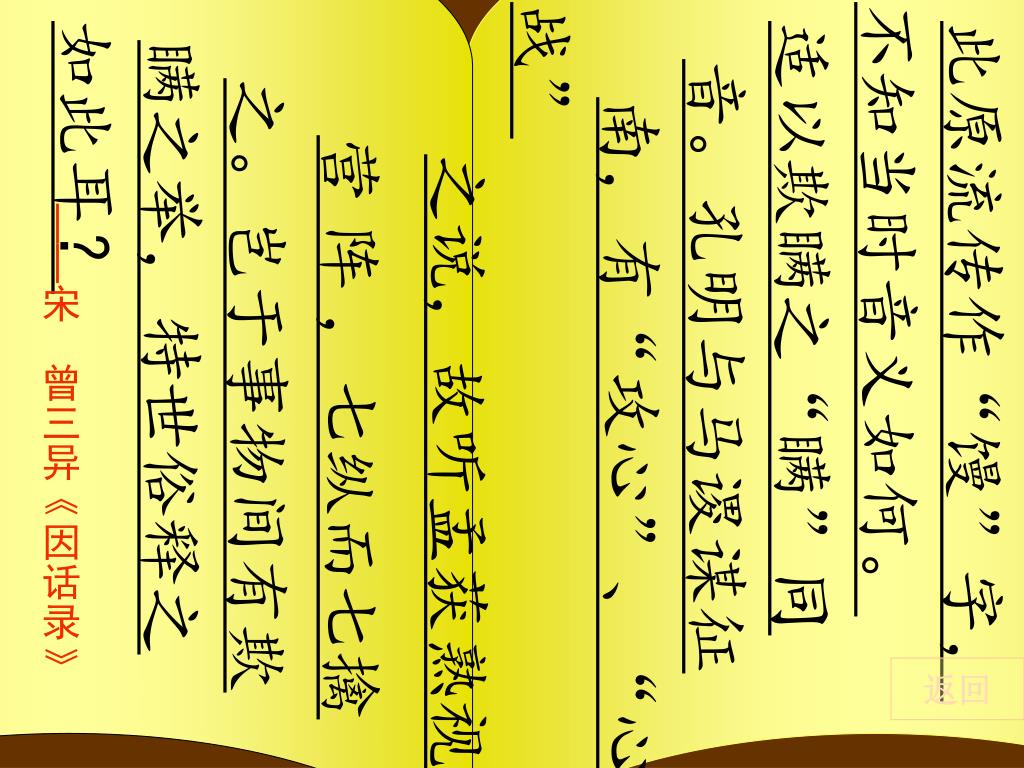 此原流传作“馒”字，
不知当时音义如何。
适以欺瞒之“瞒”同
音。孔明与马谡谋征
南，有“攻心”、“心
战”
之说，故听孟获熟视
营阵，七纵而七擒
之。岂于事物间有欺
瞒之举，特世俗释之
如此耳？
宋 曾三异《因话录》
返回